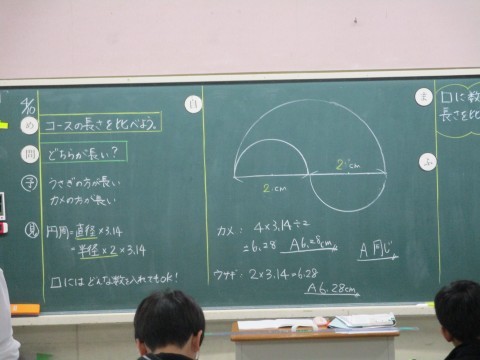 4/10
め
コースの長さを比べよう。
問
どちらが長い?
予
うさぎの方が長い
カメの方が長い
見
円周=直径×3.14
=半径×2×3.14
□にはどんな数を入れてもok!
自
2 cm
2 cm
カメ: 4×3.14÷2
=6.28 A 6.28cm
A 同じ
ウサギ: 2×3.14=6.28
A 6.28cm
ま
□に数
長さを比
ふ